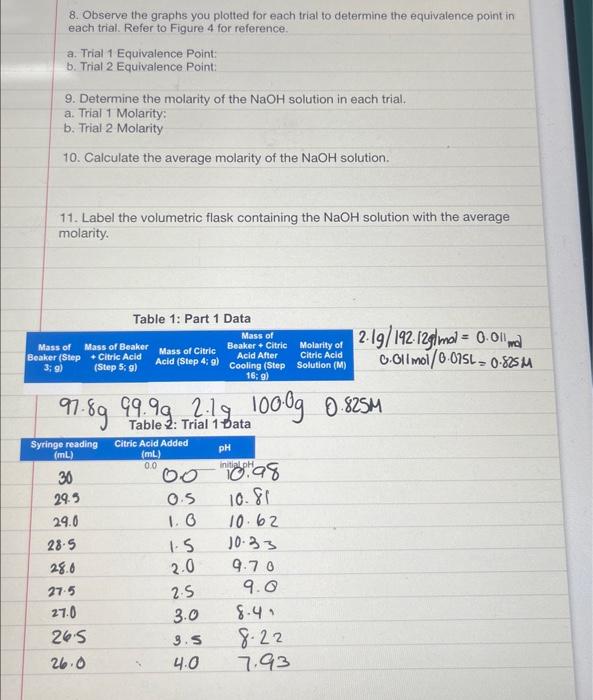 8. Observe the graphs you plotted for each trial to determine the equivalence point in
each trial. Refer to Figure 4 for reference.
a. Trial 1 Equivalence Point:
b. Trial 2 Equivalence Point:
9. Determine the molarity of the NaOH solution in each trial.
a. Trial 1 Molarity:
b. Trial 2 Molarity
10. Calculate the average molarity of the NaOH solution.
11. Label the volumetric flask containing the NaOH solution with the average
molarity.
Table 1: Part 1 Data
Mass of Beaker (Step 3; g) Mass of Beaker + Citric Acid (Step 5; g) Mass of Citric Acid (Step 4; g) Mass of Beaker + Citric Acid After Cooling (Step 16; g) Molarity of Citric Acid Solution (M)
2.1g/192.12g/mol = 0.011 mol
0.011mol/0.015L = 0.825M
97.8g 99.9g 2.1g 100.0g 0.825M
Table 2: Trial 1 Data
Syringe reading (mL) Citric Acid Added (mL) pH
0.0 initial pH
30 0.0 10.98
29.5 0.5 10.81
29.0 1.0 10.62
28.5 1.5 10.33
28.0 2.0 9.70
27.5 2.5 9.0
27.0 3.0
26.5 3.5 8.22
26.0 4.0 7.93